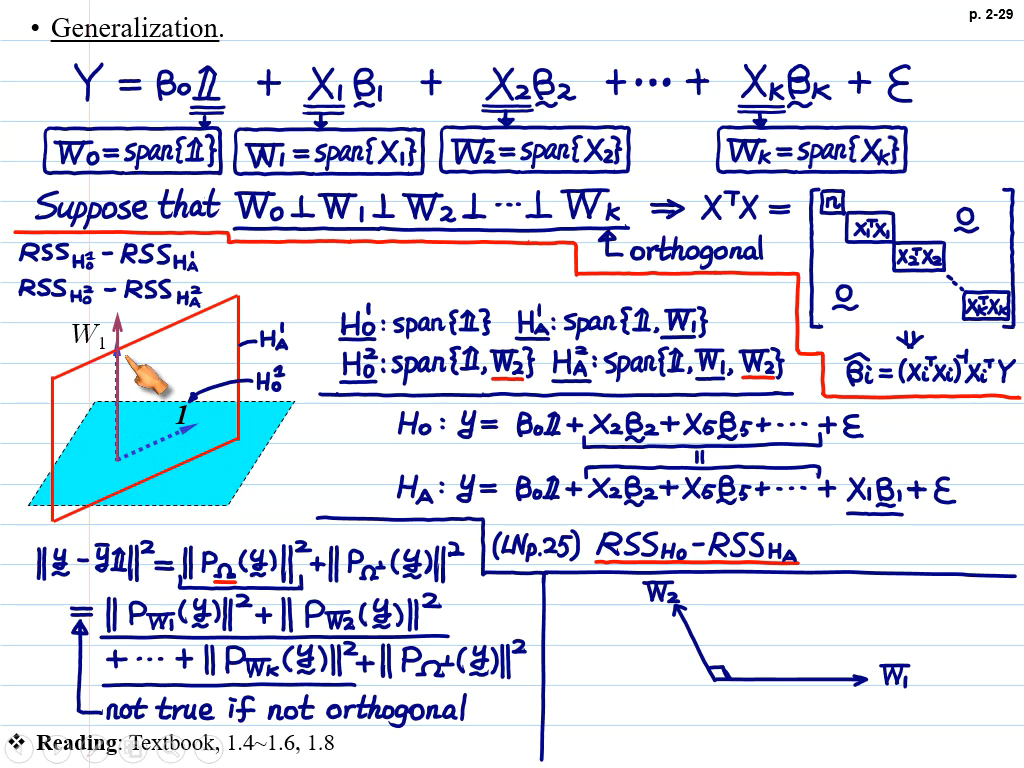 p. 2-29
• Generalization.
Y = β₀𝟙 + X₁β₁ + X₂β₂ + ⋯ + Xₖβₖ + ε
W₀ = span{𝟙} W₁ = span{X₁} W₂ = span{X₂} Wₖ = span{Xₖ}
Suppose that W₀ ⊥ W₁ ⊥ W₂ ⊥ ⋯ ⊥ Wₖ ⇒ XᵀX =
n X₁ᵀX₁ X₂ᵀX₂ XₖᵀXₖ 0 0
orthogonal
RSS_H₀¹ − RSS_H_A¹
RSS_H₀² − RSS_H_A²
W₁
H_A¹
H₀¹
1
H₀¹: span{𝟙} H_A¹: span{𝟙, W₁}
H₀²: span{𝟙, W₂} H_A²: span{𝟙, W₁, W₂}
β̂ᵢ = (XᵢᵀXᵢ)⁻¹XᵢᵀY
H₀ : y = β₀𝟙 + X₂β₂ + X₅β₅ + ⋯ + ε
=
H_A : y = β₀𝟙 + X₂β₂ + X₅β₅ + ⋯ + X₁β₁ + ε
(LNp.25) RSS_H₀ − RSS_H_A
‖y − ȳ𝟙‖² = ‖P_Ω(y)‖² + ‖P_Ω⊥(y)‖²
= ‖P_W₁(y)‖² + ‖P_W₂(y)‖²
+ ⋯ + ‖P_Wₖ(y)‖² + ‖P_Ω⊥(y)‖²
not true if not orthogonal
W₂
W₁
❖ Reading: Textbook, 1.4~1.6, 1.8